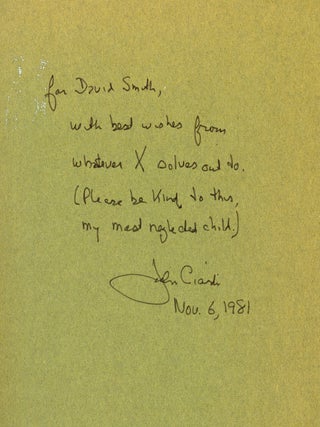 for David Smith,
with best wishes from
whatever X solves out to.
(Please be kind to this,
my most neglected child.)
John Ciardi
Nov. 6, 1981